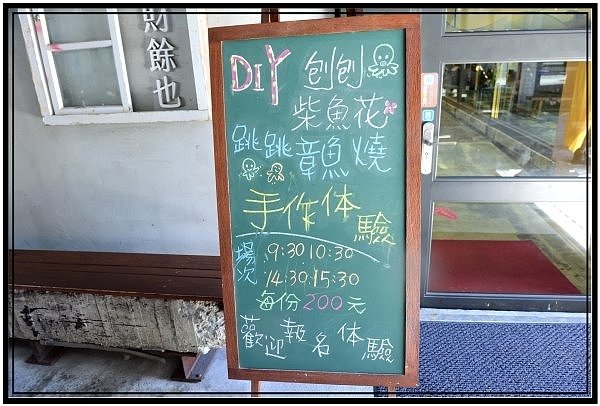 財餘也
DIY 刨刨
柴魚花
跳跳章魚燒
手作体驗
場次 9:30 10:30
14:30 15:30
每份200元
歡迎報名体驗